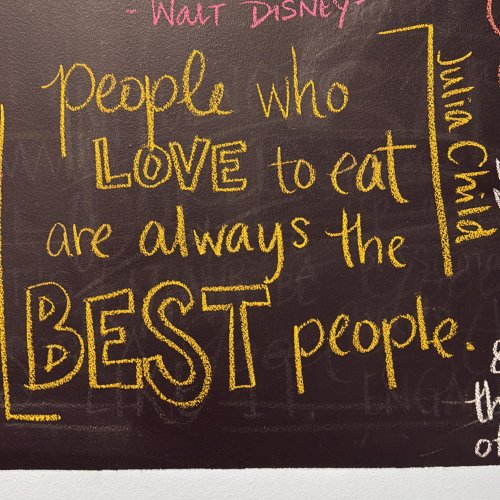 - WALT DISNEY -
people who
LOVE to eat
are always the
BEST people.
Julia Child
&
th
of